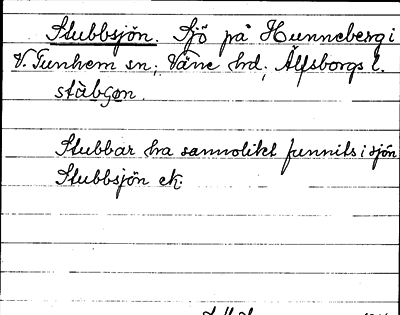 Stubbsjön. Sjö på Hunneberg i
V. Tunhem sn; Väne hd, Älfsborgs l.
stäbGøn.
Stubbar ha sannolikt funnits i sjön
Stubbsjön ek.